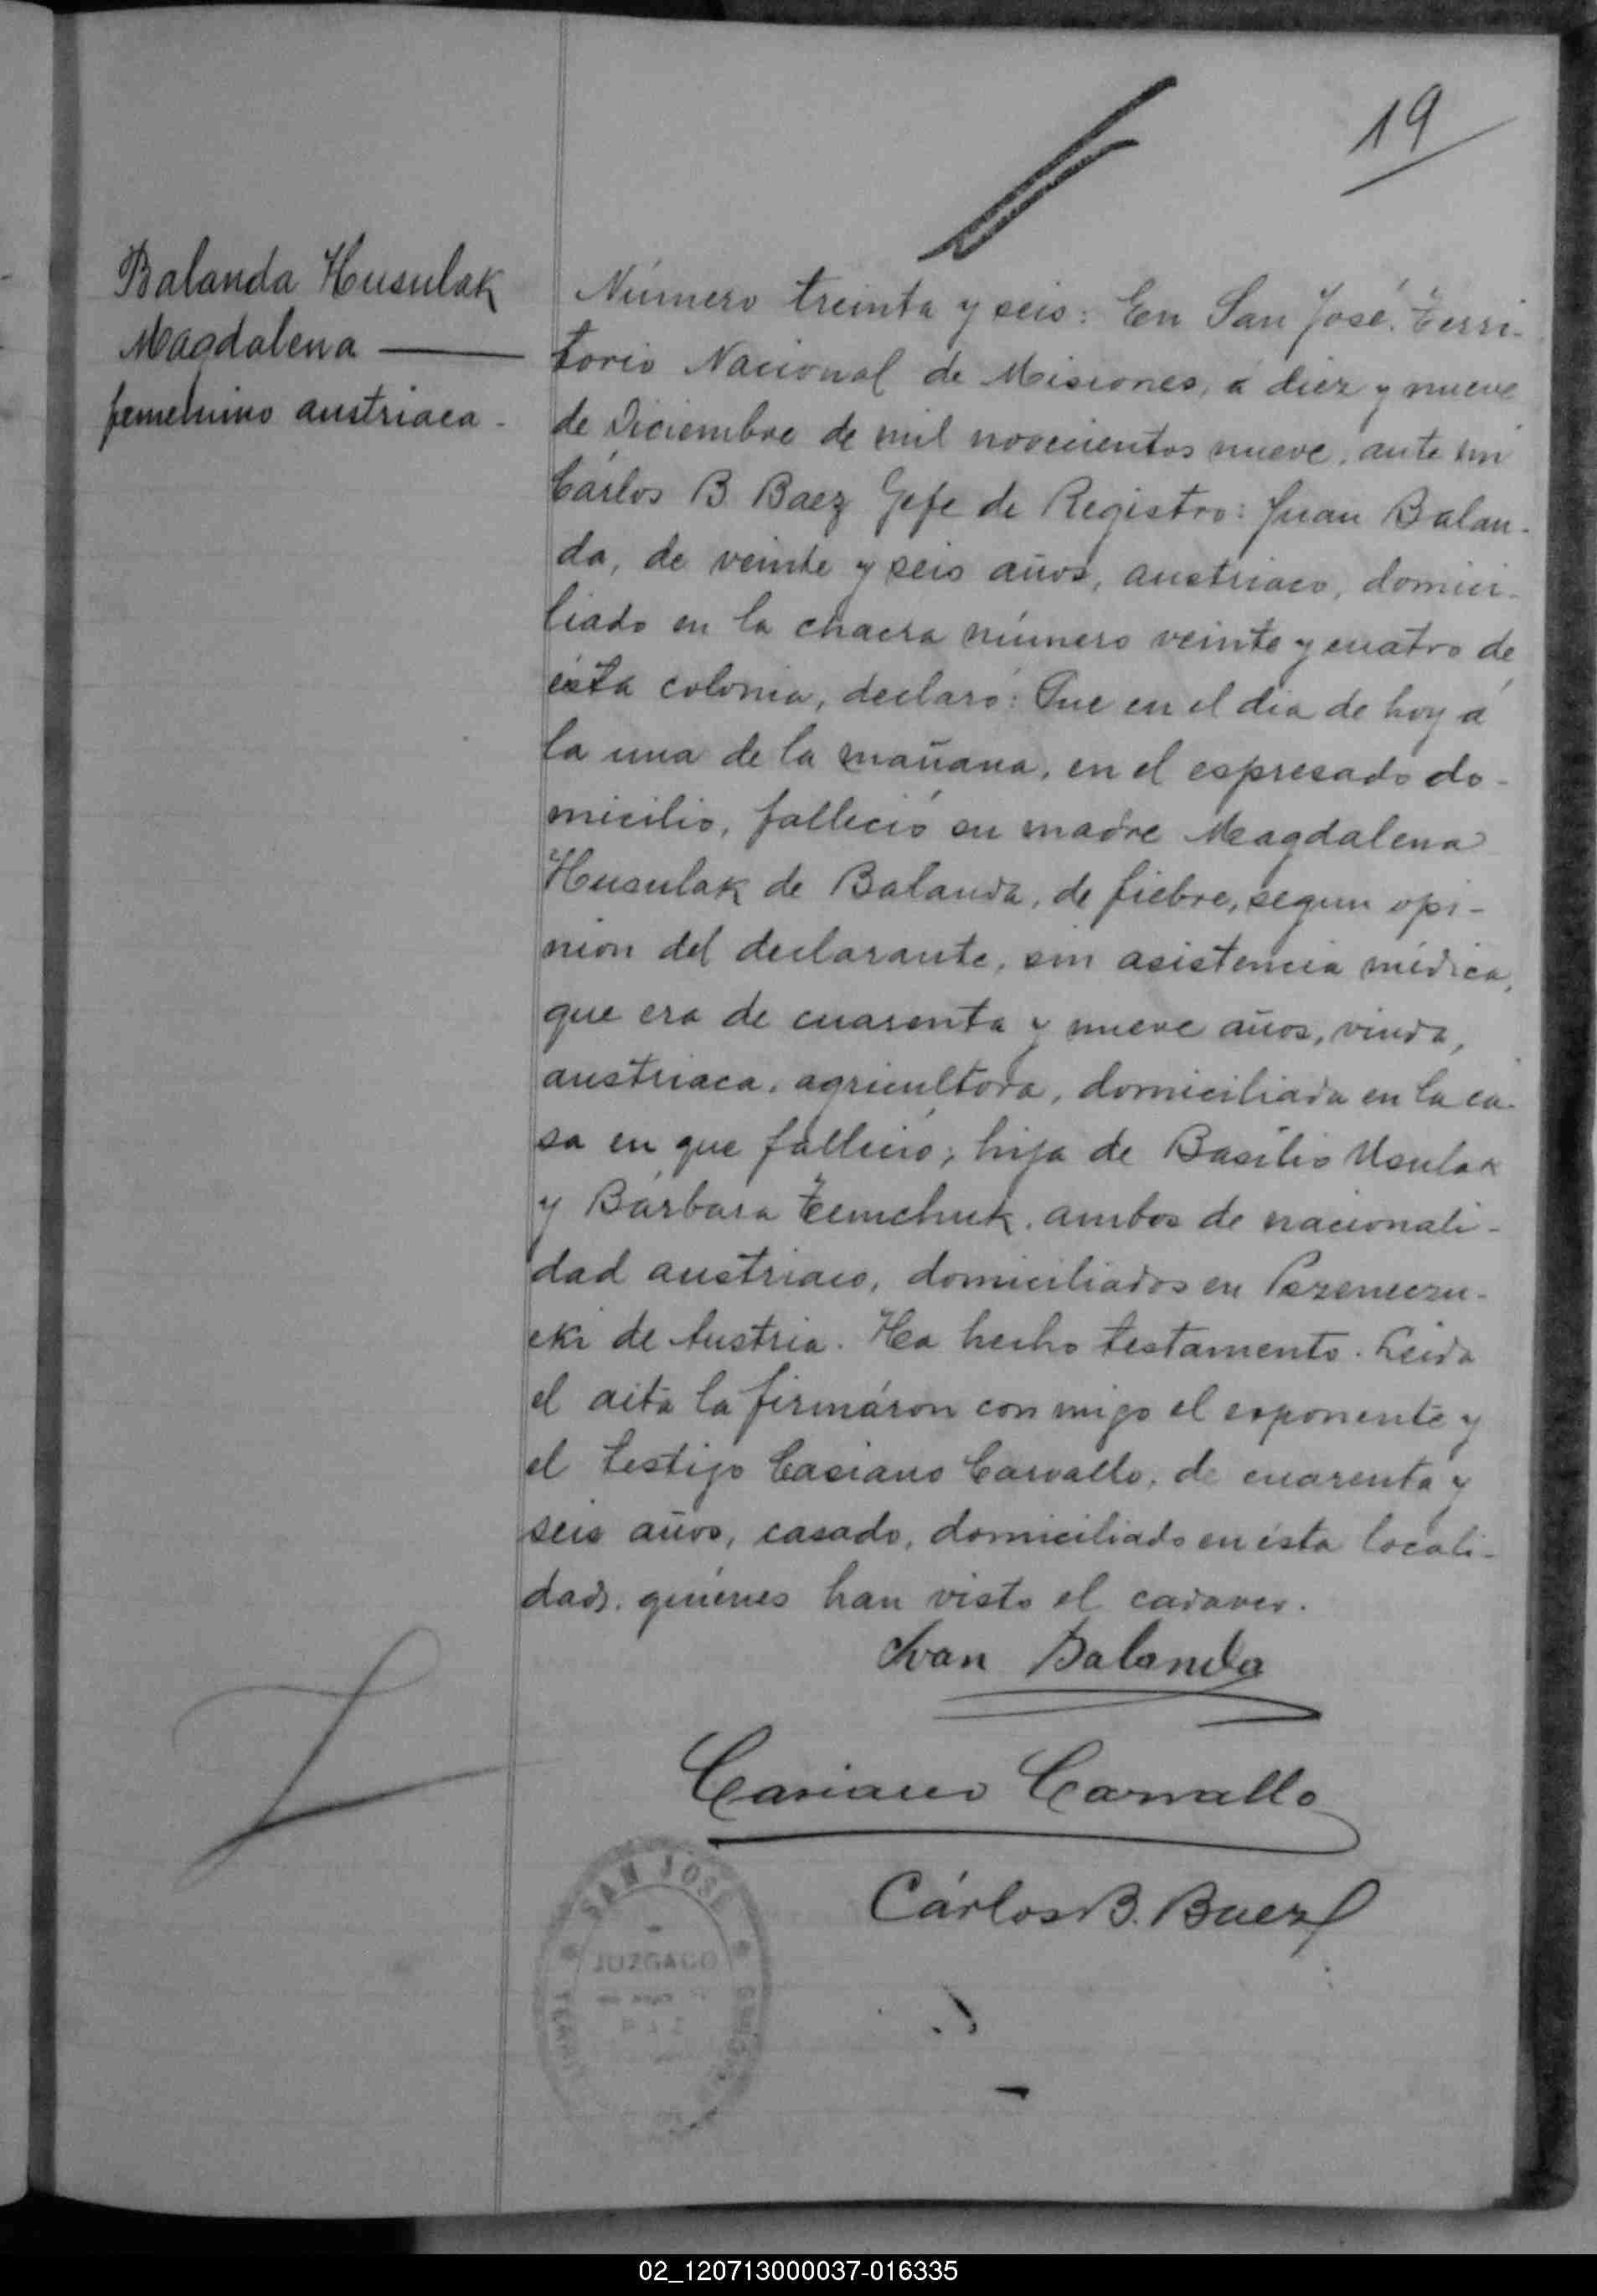 19
Balanda Husulak
Magdalena
femenino austriaca.
Número treinta y seis: En San José, Terri-
torio Nacional de Misiones, á diez y nueve
de Diciembre de mil novecientos nueve, ante mi
Cárlos B Baez Gefe de Registro: Juan Balan-
da, de veinte y seis años, austriaco, domici-
liado en la chacra número veinte y cuatro de
ésta colonia, declaró: Que en el dia de hoy á
la una de la mañana, en el espresado do-
micilio, falleció su madre Magdalena
Husulak de Balanda, de fiebre, segun opi-
nion del declarante, sin asistencia médica,
que era de cuarenta y nueve años, viuda,
austriaca, agricultora, domiciliada en la ca-
sa en que falleció; hija de Basilio Usulak
y Bárbara Temchuk, ambos de nacionali-
dad austriaco, domiciliados en
de Austria. Ha hecho testamento. Leida
el acta la firmáron conmigo el esponente y
el testigo Casiano Carvallo, de cuarenta y
seis años, casado, domiciliado en ésta locali-
dad, quiénes han visto el cadaver.
Ivan Balanda
Casiano Carvallo
Cárlos B. Baez
SAN JOSÉ
JUZGADO
02_120713000037-016335